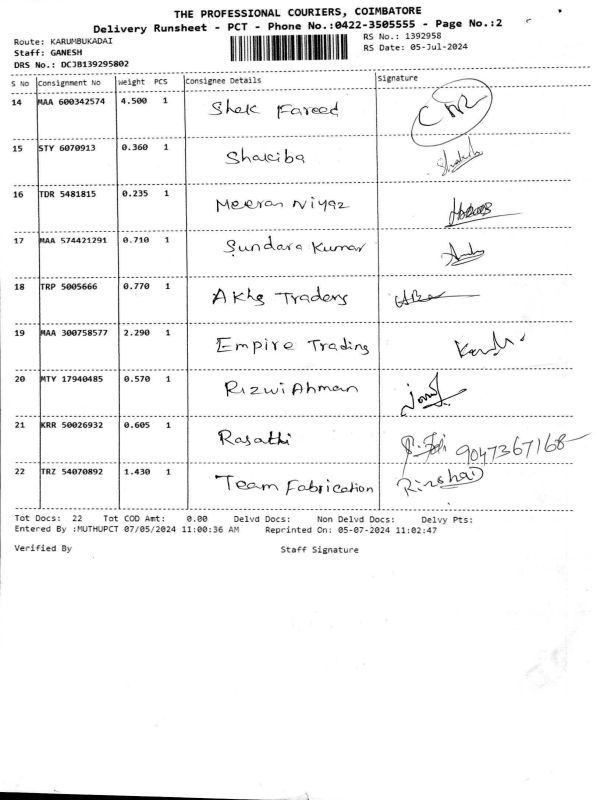 THE PROFESSIONAL COURIERS, COIMBATORE
Delivery Runsheet - PCT - Phone No.:0422-3505555 - Page No.:2
Route: KARUMBUKADAI RS No.: 1392958
Staff: GANESH RS Date: 05-Jul-2024
DRS No.: DCJB139295802
S No Consignment No Weight PCS Consignee Details Signature
14 MAA 600342574 4.500 1 Shek Fareed
15 STY 6070913 0.360 1 Shakiba
16 TDR 5481815 0.235 1 Meeran Niyaz
17 MAA 574421291 0.710 1 Sundara Kumar
18 TRP 5005666 0.770 1 Akhs Traders
19 MAA 300758577 2.290 1 Empire Trading
20 MTY 17940485 0.570 1 Rizwi Ahman
21 KRR 50026932 0.605 1 Rasathi 9047367168
22 TRZ 54070892 1.430 1 Team Fabrication Rinshad
Tot Docs: 22 Tot COD Amt: 0.00 Delvd Docs: Non Delvd Docs: Delvy Pts:
Entered By :MUTHUPCT 07/05/2024 11:00:36 AM Reprinted On: 05-07-2024 11:02:47
Verified By Staff Signature